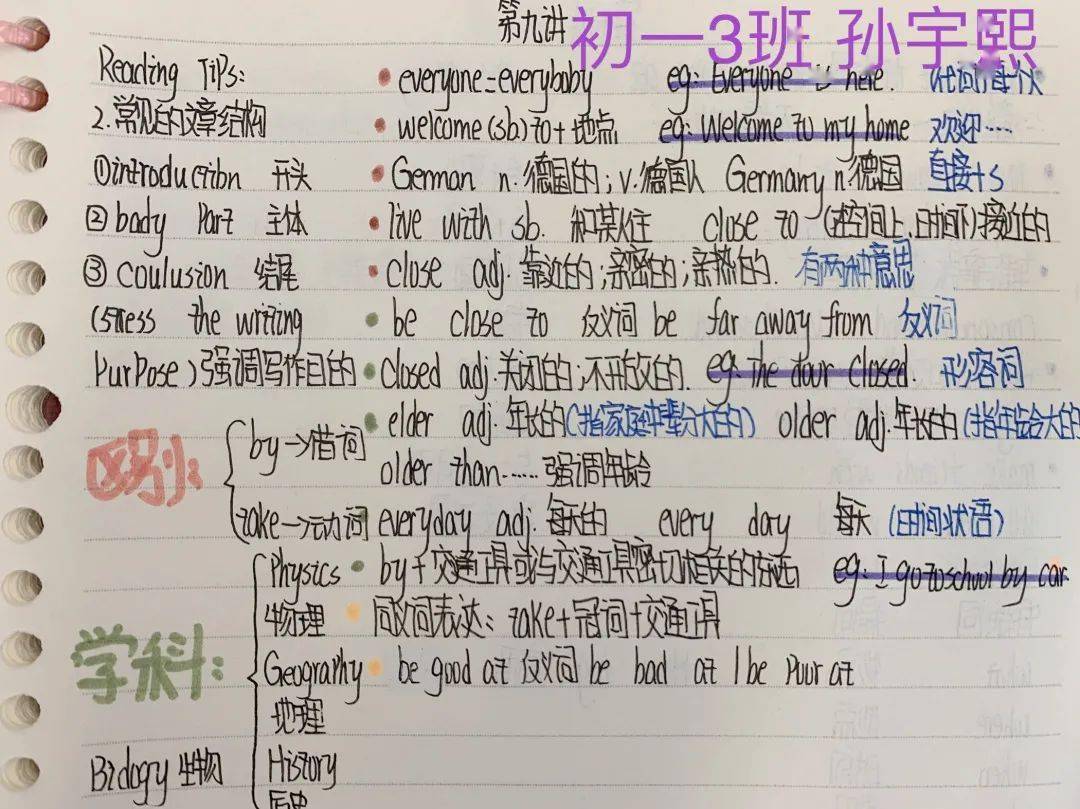 第九讲 初一3班 孙宇熙
Reading Tips: everyone=everybaby eg: Everyone is here.
2.常见的文章结构 welcome(sb)to+地点 eg: Welcome to my home 欢迎……
①introduction 开头 German n.德国的;v.德国人 Germany n.德国 直接+s
②bady Part 主体 live with sb. 和某人住 close to (在空间上,时间下)接近的
③Coulusion 结尾 close adj.靠近的;亲密的;亲热的. 有两种意思
(stress the writing be close to 反义词 be far away from 反义词
PurPose)强调写作目的 closed adj.关闭的;不开放的. eg: The dour closed. 形容词
elder adj.年长的(指家庭中辈分大的) older adj.年长的(指年龄大的
区别: by→借词 older than……强调年龄
take→动词 everyday adj.每天的 every day 每天 (时间状语)
Physics by+交通工具或与交通工具密切相关的东西 eg: I go to school by car.
物理 同义词表达: take+冠词+交通工具
学科: Geography be good at 反义词 be bad at / be Puur at
地理
Biology 生物 History
历史